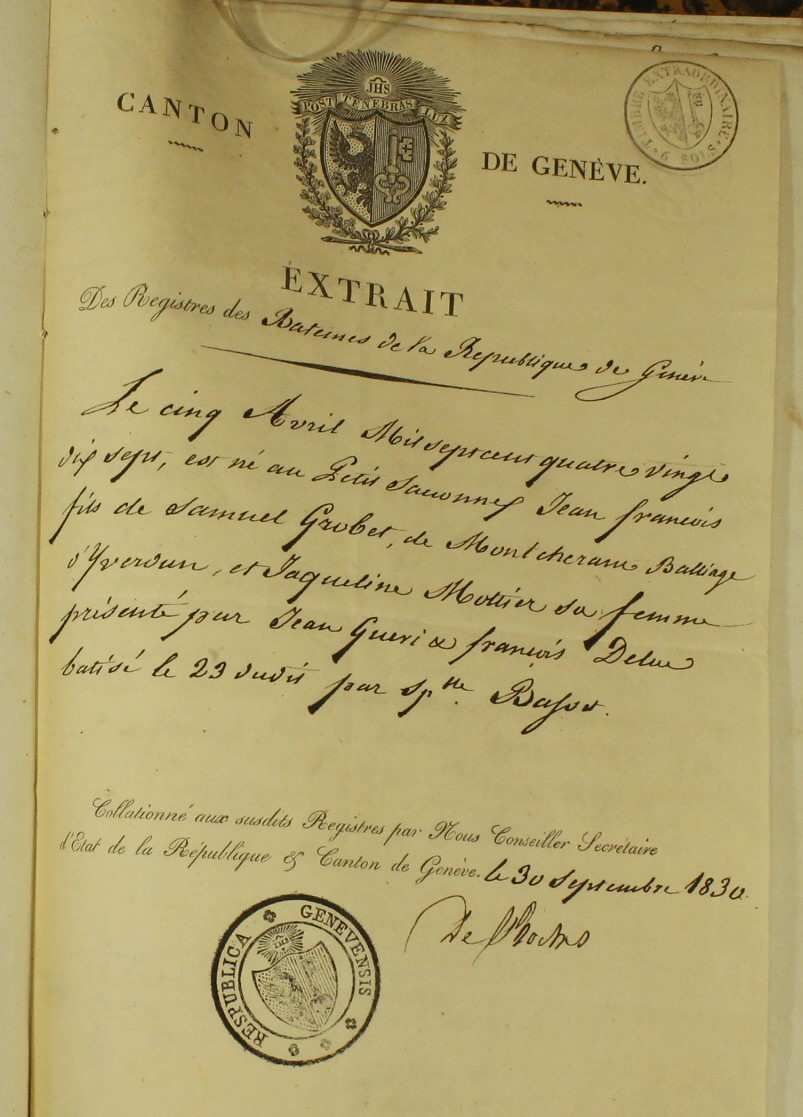 JHS
POST TENEBRAS LUX
CANTON DE GENÈVE.
TIMBRE EXTRAORDINAIRE. 9 SOLS
EXTRAIT
Des Registres des Batemes de la Republique de Genève
Le cinq Avril Mil sept cent quatre vingt
dix sept, est né au Petit Saconnex Jean françois
fils de Samuel Grobet, de Montcherand Balliage
d'Yverdun, et Jaqueline Mottier sa femme
présenté par Jean Gueri & françois Deluc
batisé le 23 dudit par Sp.
Collationné aux susdits Registres par Nous Conseiller Secrétaire
d'Etat de la République & Canton de Genève. le 30 Septembre 1830.
De
RESPUBLICA GENEVENSIS
JHS